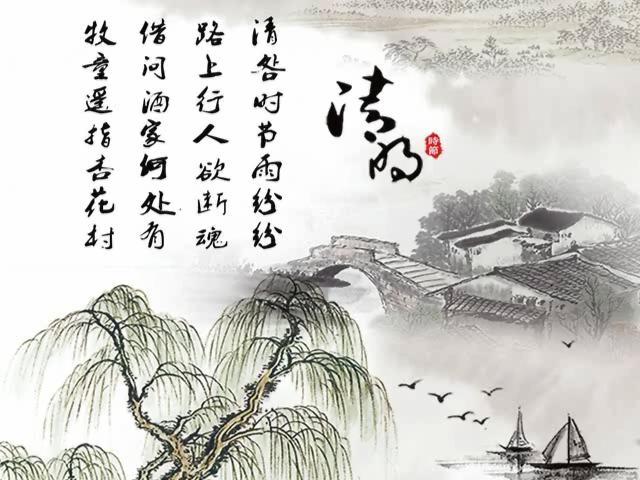 清咎时节雨纷纷
路上行人欲断魂
借问酒家何处有
牧童遥指杏花村
清明
時節